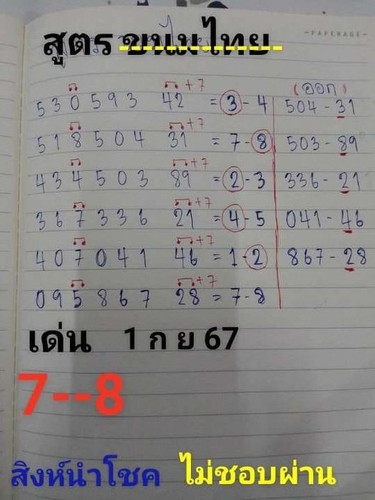 สูตร ขนมไทย
-PAPERAGE-
+7 (ออก)
530593 42 = 3-4 504-31
+7
518504 31 = 7-8 503-89
+7
434503 89 = 2-3 336-21
+7
367336 21 = 4-5 041-46
+7
407041 46 = 1-2 867-28
+7
095867 28 = 7-8
เด่น 1 ก ย 67
7--8
สิงห์นำโชค ไม่ชอบผ่าน